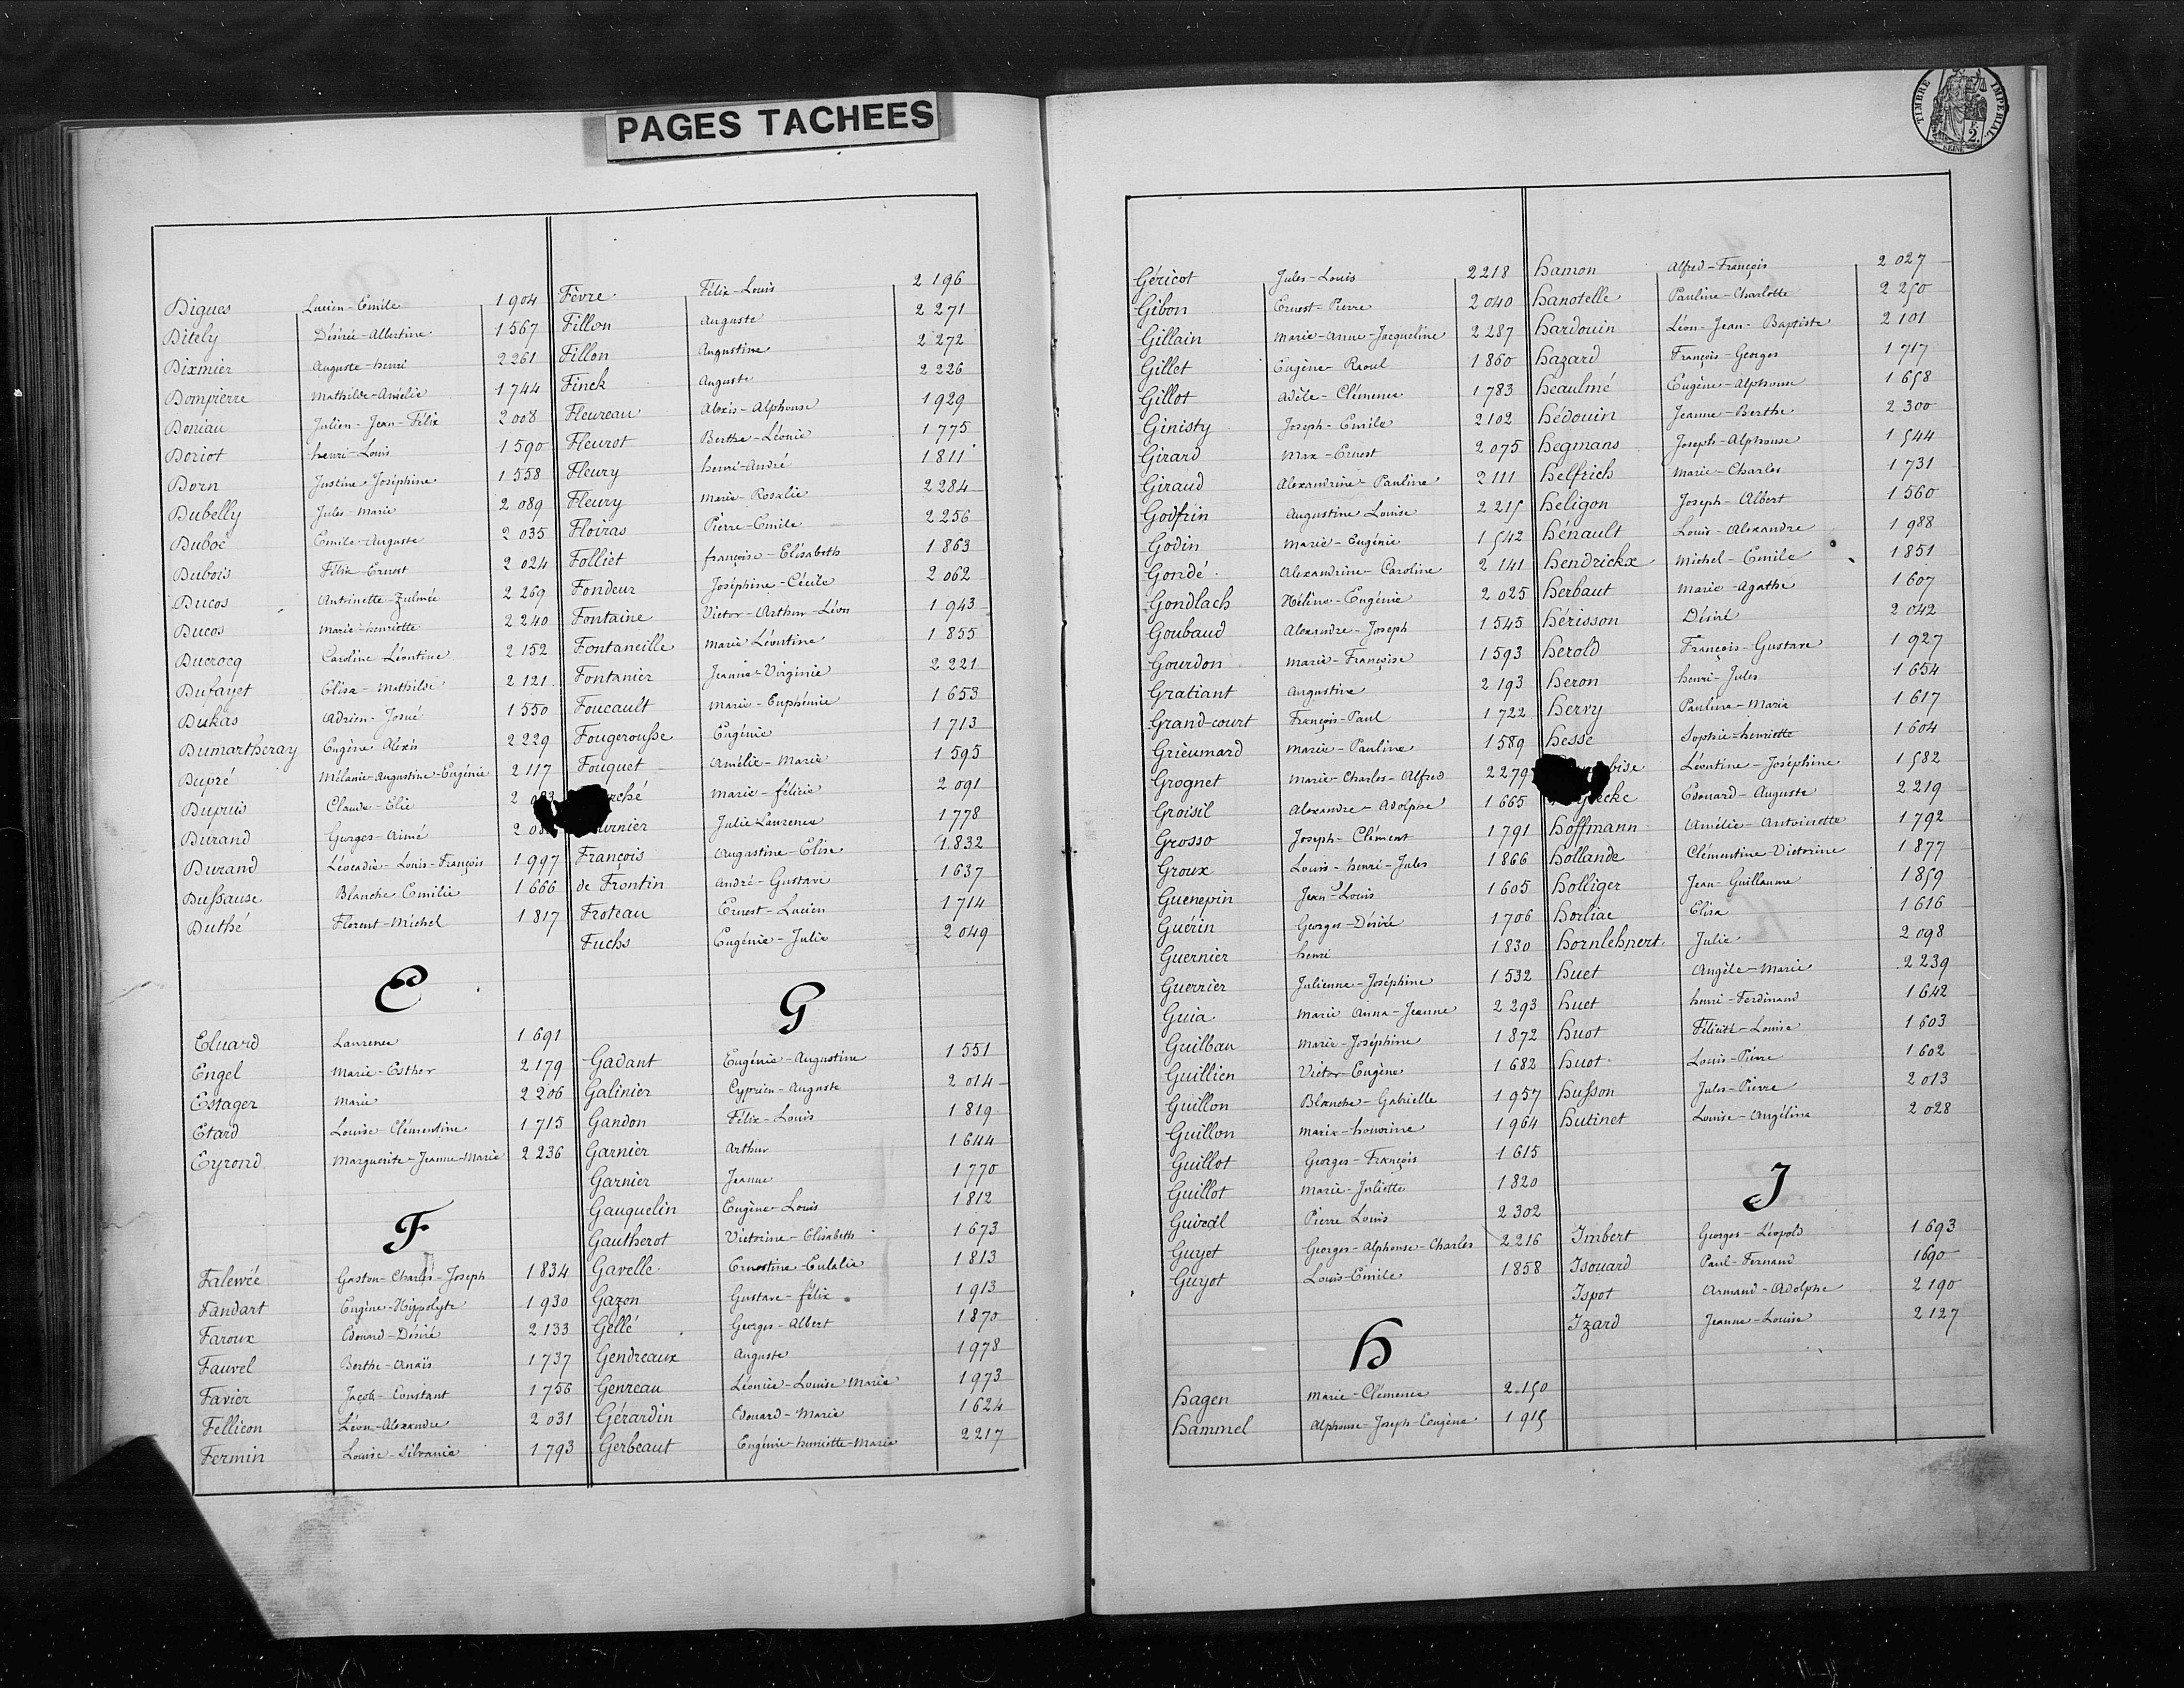 PAGES TACHEES
Digues Lucien-Emile 1904
Ditely Désirée-Albertine 1567
Dixmier Auguste-henri 2261
Dompierre Mathilde-Amélie 1744
Doniau Julien-Jean-Félix 2008
Doriot henri-Louis 1590
Dorn Justine Joséphine 1558
Dubelly Jules-Marie 2089
Duboc Emile-Auguste 2035
Dubois Félix-Ernest 2024
Ducos Antoinette-Zulmée 2269
Ducos Marie-henriette 2240
Ducrocq Caroline Léontine 2152
Dufayet Elisa-Mathilde 2121
Dukas Adrien-Josué 1550
Dumartheray Eugène Alexis 2229
Dupré Mélanie-Augustine-Eugénie 2117
Dupuis Claude-Elie
Durand Georges-Aimé
Durand Léocadie-Louis-François 1997
Dussause Blanche Emilie 1666
Duthé Florent-Michel 1817
E
Eluard Laurence 1691
Engel Marie-Esther 2179
Estager Marie 2206
Etard Louise-Clémentine 1715
Eyrond Marguerite-Jeanne-Marie 2236
F
Falewée Gaston-Charles-Joseph 1834
Fandart Eugène-Hippolyte 1930
Faroux Edouard-Désiré 2133
Fauvel Berthe-Anaïs 1737
Favier Jacob-Constant 1756
Fellieon Léon-Alexandre 2031
Fermin Louise-Silvanie 1793
Fèvre Félix-Louis 2196
Fillon Auguste 2271
Fillon Augustine 2272
Finck Auguste 2226
Fleureau Alexis-Alphonse 1929
Fleurot Berthe-Léonie 1775
Fleury henri-André 1811
Fleury Marie-Rosalie 2284
Floiras Pierre-Emile 2256
Folliet françoise-Elisabeth 1863
Fondeur Joséphine-Cécile 2062
Fontaine Victor-Arthur-Léon 1943
Fontaneille Marie Léontine 1855
Fontanier Jeanne-Virginie 2221
Foucault Marie-Euphémie 1653
Fougerousse Eugénie 1713
Fouquet Amélie-Marie 1595
rché Marie-félicie 2091
urnier Julie Laurence 1778
François Augustine-Elise 1832
de Frontin André-Gustave 1637
Froteau Ernest-Lucien 1714
Fuchs Eugénie-Julie 2049
G
Gadant Eugénie-Augustine 1551
Galinier Cyprien-Auguste 2014
Gandon Félix-Louis 1819
Garnier Arthur 1644
Garnier Jeanne 1770
Gauquelin Eugène-Louis 1812
Gautherot Victorine-Elisabeth 1673
Gavelle Ernestine-Eulalie 1813
Gazon Gustave-félix 1913
Gellé Georges-Albert 1870
Gendreaux Auguste 1978
Genreau Léonie-Louise Marie 1973
Gérardin Edouard-Marie 1624
Gerbeaut Eugénie-henriette-Marie 2217
TIMBRE IMPERIAL
2.
SEINE
Géricot Jules-Louis 2218
Gibon Ernest-Pierre 2040
Gillain Marie-Anne-Jacqueline 2287
Gillet Eugène-Raoul 1860
Gillot Adèle-Clémence 1783
Ginisty Joseph-Emile 2102
Girard Max-Ernest 2075
Giraud Alexandrine-Pauline 2111
Godfrin Augustine Louise 2215
Godin Marie-Eugénie 1542
Gondé Alexandrine-Caroline 2141
Gondlach Hélène-Eugénie 2025
Goubaud Alexandre-Joseph 1545
Gourdon Marie-Françoise 1593
Gratiant Augustine 2193
Grand-court François-Paul 1722
Grieumard Marie-Pauline 1589
Grognet Marie-Charles-Alfred 2279
Groisil Alexandre-Adolphe 1665
Grosso Joseph-Clément 1791
Groux Louis-henri-Jules 1866
Guenepin Jean-Louis 1605
Guérin Georges-Désiré 1706
Guernier henri 1830
Guerrier Julienne-Joséphine 1532
Guia Marie Anna-Jeanne 2293
Guilbau Marie-Joséphine 1872
Guillien Victor-Eugène 1682
Guillon Blanche-Gabrielle 1957
Guillon Marie-honorine 1964
Guillot Georges-François 1615
Guillot Marie-Juliette 1820
Pierre Louis 2302
Guyot Georges-Alphonse-Charles 2216
Guyot Louis-Emile 1858
H
Hagen Marie-Clémence 2150
Hammel Alphonse-Joseph-Eugène 1915
Hamon Alfred-François 2027
Hanotelle Pauline-Charlotte 2250
Hardouin Léon-Jean-Baptiste 2101
Hazard François-Georges 1717
Heaulmé Eugène-Alphonse 1658
Hédouin Jeanne-Berthe 2300
Hegmans Joseph-Alphonse 1544
Helfrich Marie-Charles 1731
Heligon Joseph-Albert 1560
Hénault Louis-Alexandre 1988
Hendrickx Michel-Emile 1851
Herbaut Marie-Agathe 1607
Hérisson Désiré 2042
Herold François-Gustave 1927
Heron henri-Jules 1654
Hervy Pauline-Maria 1617
Hesse Sophie-henriette 1604
bise Léontine-Joséphine 1582
Edouard-Auguste 2219
Hoffmann Amélie-Antoinette 1792
Hollande Clémentine Victorine 1877
Holliger Jean-Guillaume 1859
Horliac Elisa 1616
Hornlehnert Julie 2098
Huet Angèle-Marie 2239
Huet henri-Ferdinand 1642
Huot Félicité-Louise 1603
Huot Louis-Pierre 1602
Husson Jules-Pierre 2013
Hutinet Louise-Angéline 2028
I
Imbert Georges-Léopold 1693
Isouard Paul-Fernand 1690
Ispot Armand-Adolphe 2190
Izard Jeanne-Louise 2127